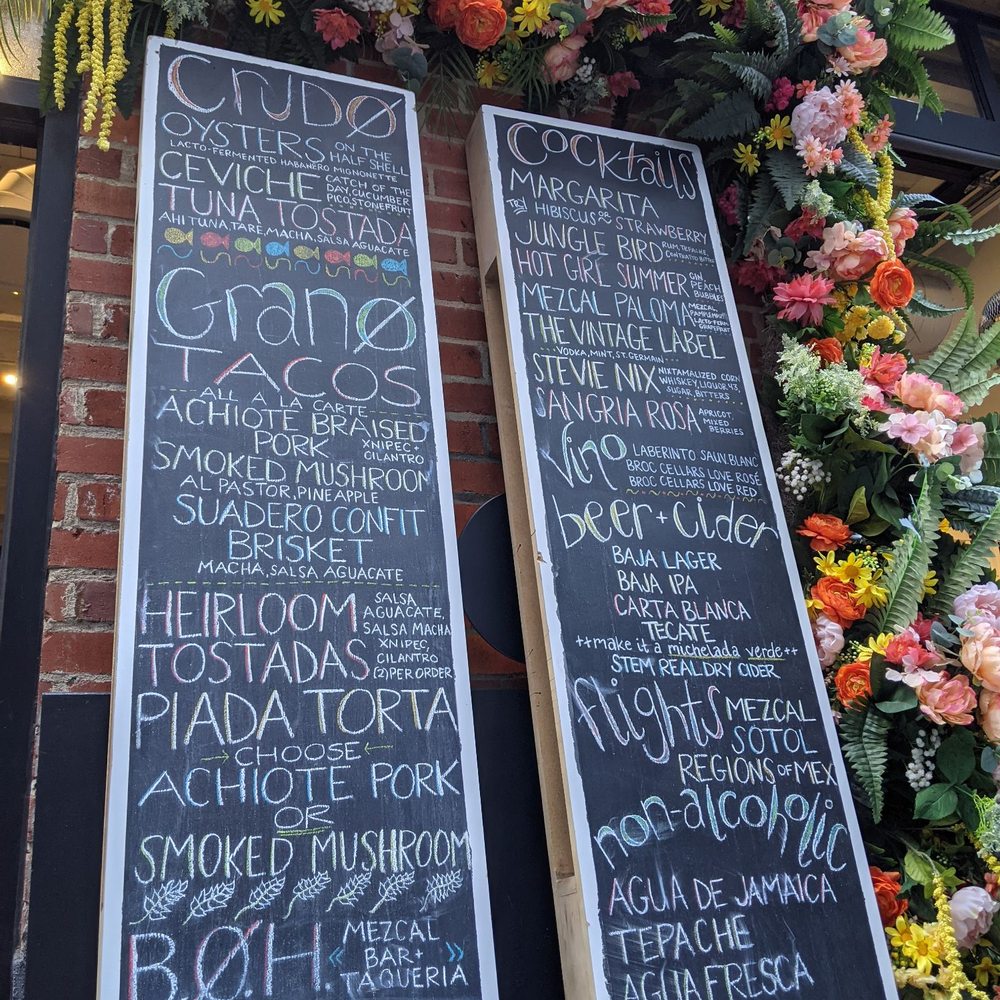 CrUDØ
OYSTERS ON THE HALF SHELL
LACTO-FERMENTED HABANERO MIGNONETTE
CEVICHE CATCH OF THE DAY, CUCUMBER PICO, STONEFRUIT
TUNA TOSTADA
AHI TUNA TARE, MACHA, SALSA AGUACATE
GranØ
TACOS
ALL A LA CARTE
ACHIOTE BRAISED
PORK XNIPEC + CILANTRO
SMOKED MUSHROOM
AL PASTOR, PINEAPPLE
SUADERO CONFIT
BRISKET
MACHA, SALSA AGUACATE
HEIRLOOM TOSTADAS
SALSA AGUACATE, SALSA MACHA XNIPEC, CILANTRO (2) PER ORDER
PIADA TORTA
CHOOSE
ACHIOTE PORK
OR
SMOKED MUSHROOM
B.Ø.H. MEZCAL BAR + TAQUERIA
Cocktails
MARGARITA
TRY HIBISCUS OR STRAWBERRY
JUNGLE BIRD RUM, TEPACHE, CONTRATTO BITTER
HOT GIRL SUMMER GIN PEACH BUBBLES
MEZCAL PALOMA MEZCAL PAMPLEMOUSSE LACTO-FERM GRAPEFRUIT
THE VINTAGE LABEL
VODKA, MINT, ST. GERMAIN
STEVIE NIX NIXTAMALIZED CORN WHISKEY, LIQUOR 43, SUGAR, BITTERS
SANGRIA ROSA APRICOT MIXED BERRIES
Vino
LABERINTO SAUV. BLANC
BROC CELLARS LOVE ROSÉ
BROC CELLARS LOVE RED
beer + cider
BAJA LAGER
BAJA IPA
CARTA BLANCA
TECATE
++make it a michelada verde++
STEM REAL DRY CIDER
flights MEZCAL
SOTOL
REGIONS OF MEX
non-alcoholic
AGUA DE JAMAICA
TEPACHE
AGUA FRESCA